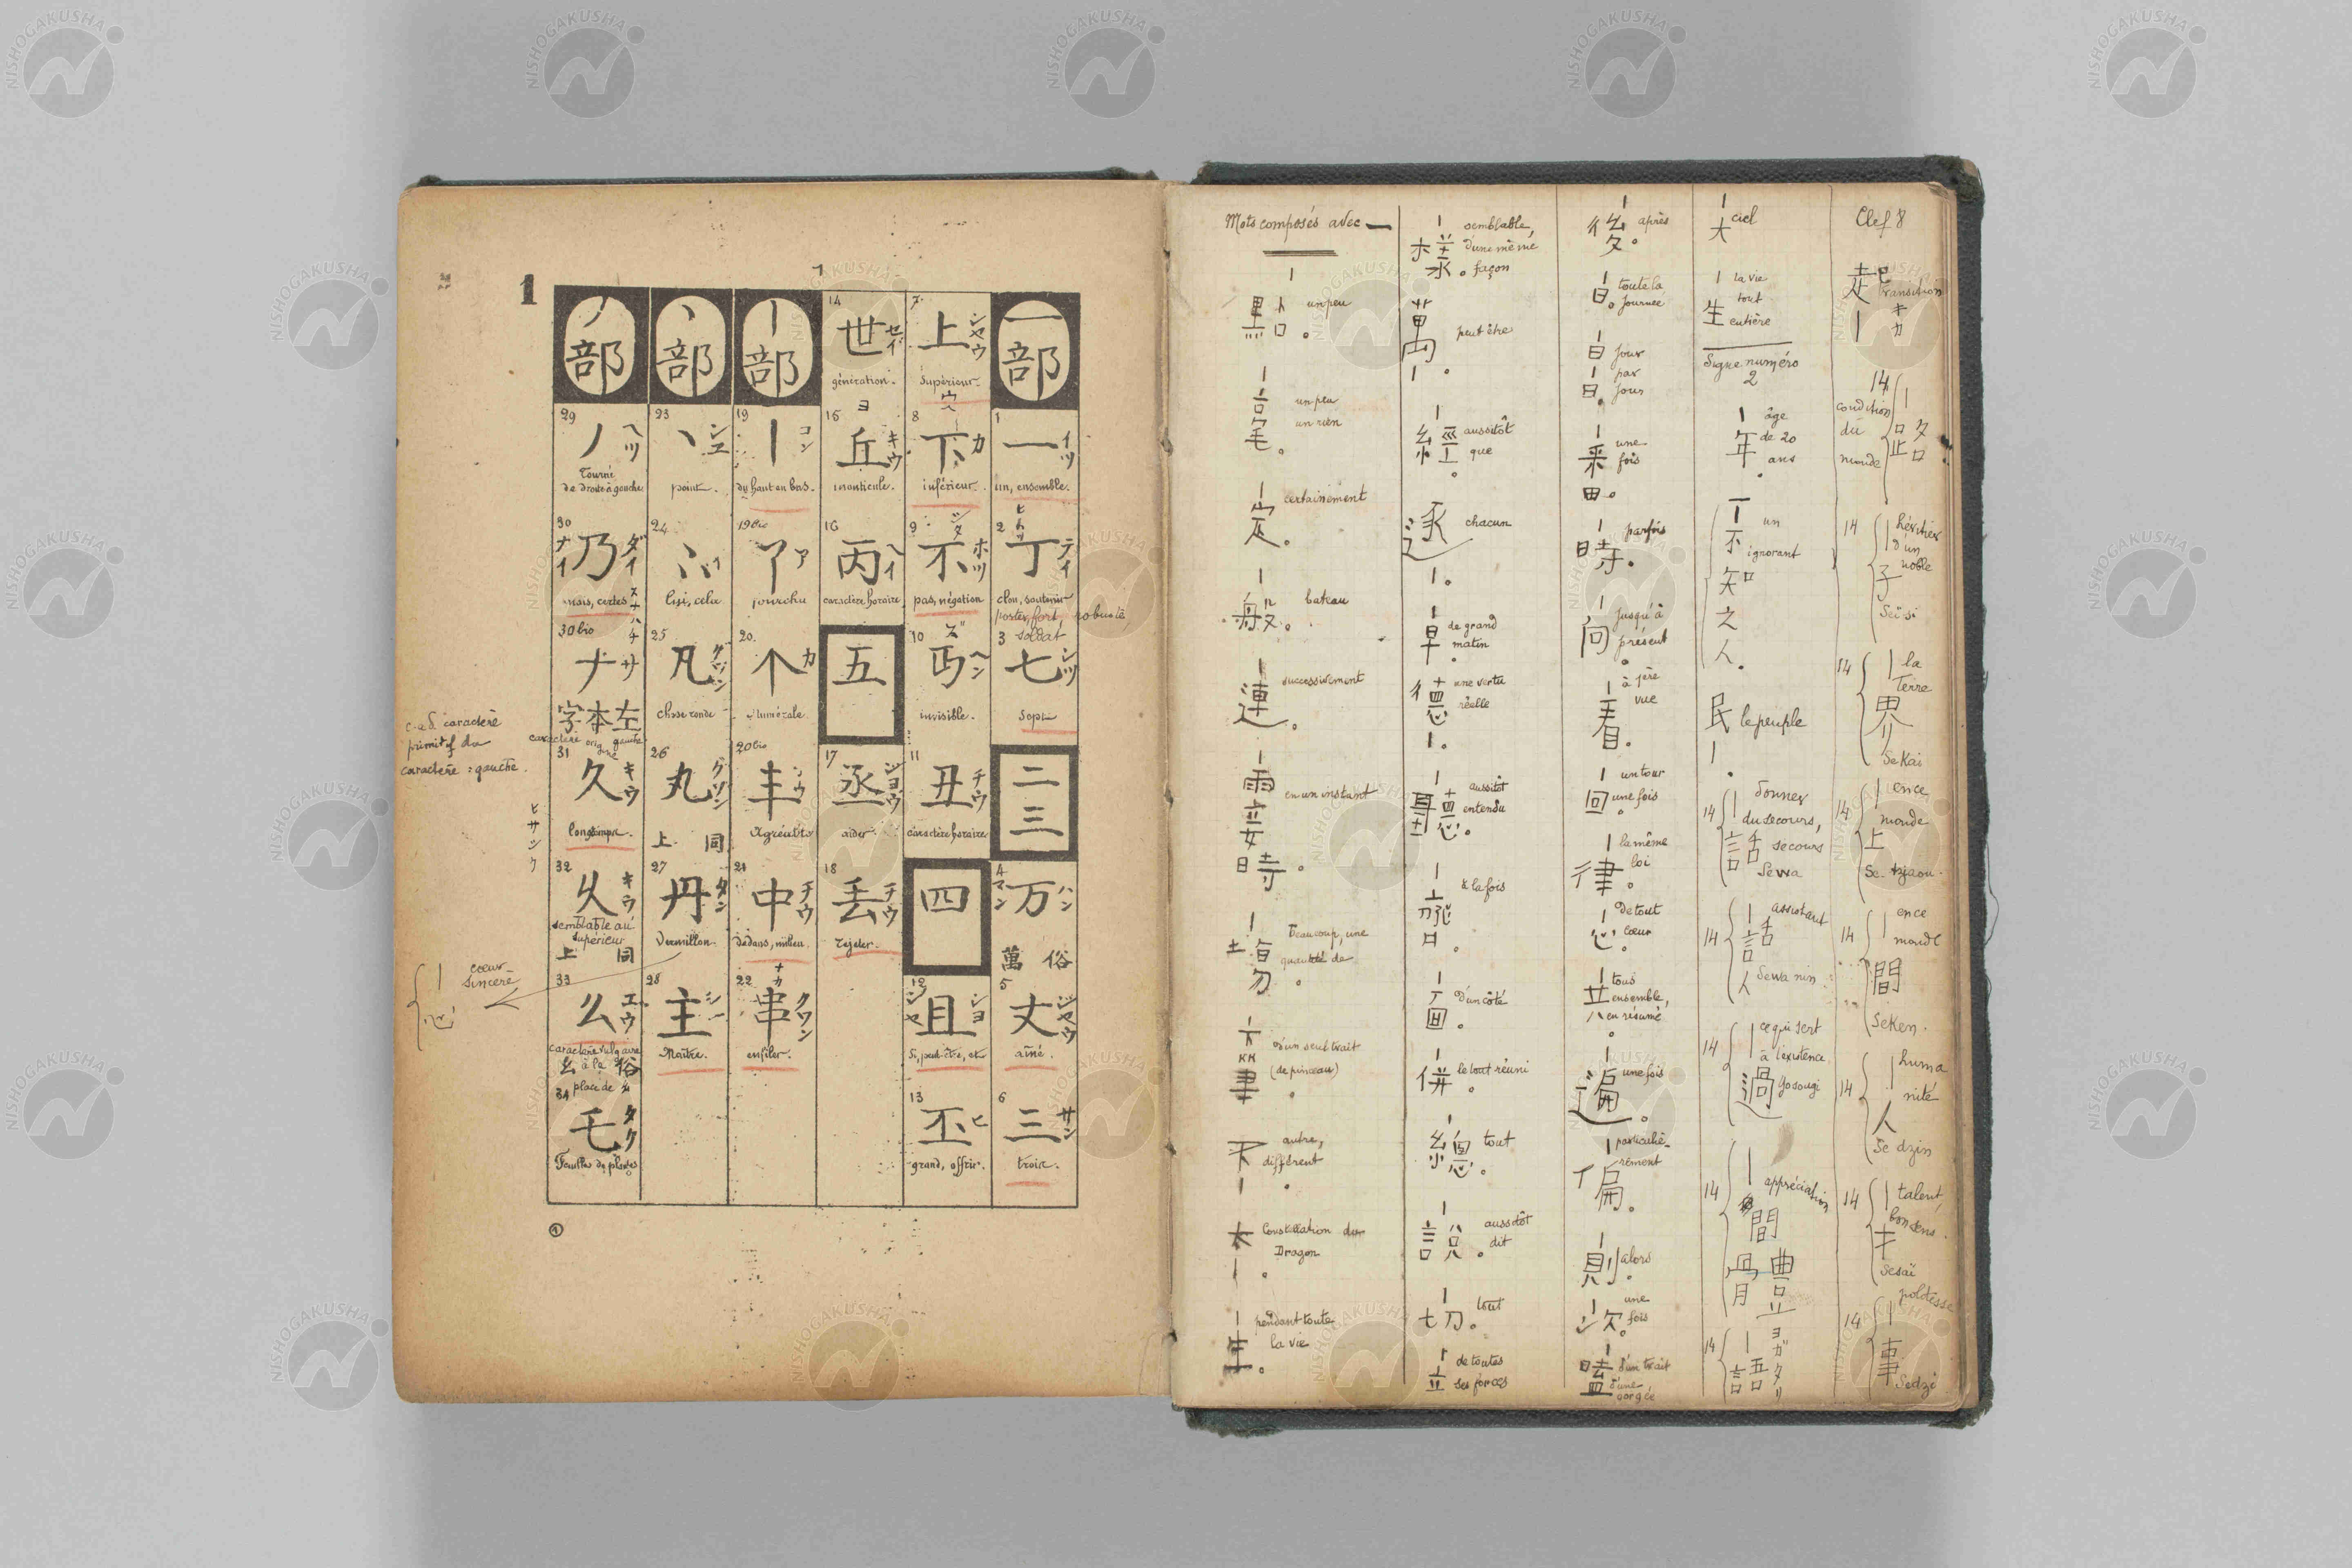 1
一部
1 一 イツ
un, ensemble.
2 丁 テイ
clou, soutenir
poster, fort, robuste
soldat
3 七 シツ
Sept
二
三
4 万 バン マン
萬 俗
5 丈 ジヤウ
aîné.
6 三 サン
trois.
7 上 シヤウ
Supérieur.
8 下 カ
inférieur.
9 不 ホツ
pas, négation
10 丏 ヘン
invisible.
11 丑 チウ
caractère horaire
四
12 且 シヨ
Si, peut-être, et
13 丕 ヒ
grand, offrir.
14 世 セイ
génération.
15 丘 キウ
monticule.
16 丙 ヘイ
caractère horaire
五
17 丞 ジヨウ
aider.
18 丟 チウ
rejeter.
丨部
19 丨 コン
du haut en bas.
19bis 丫 ア
fourchu
20. 个 カ
numérale.
20bis 丰
Agréable
21 中 チウ
dedans, milieu.
22 串 クワン
enfiler.
丶部
23 丶
point.
24
25 凡
chose ronde
26 丸 グワン
上 同
27 丹 タン
Vermillon
28 主 シー
Maître.
丿部
29 丿 ヘツ
Tourné
de droite à gauche
30 乃 ダイ ナイ
mais, certes
30bis 𠂇 サ
左本字
caractère orig. gauche
31 久 キウ
longtemps.
ヒサシク
32 乆 キウ
semblable au
supérieur
上 同
33 么 エウ
caractère vulgaire
à la 俗
place de 幺
34 乇 タク
Feuilles de plantes
c.a.d. caractère
primitif du
caractère : gauche.
cœur
sincère
丨
心
Mots composés avec 一
丨點 un peu
丨毫 un peu
un rien
丨定 certainement
丨般 bateau
丨連 successivement
丨霎時 en un instant
丨塲 beaucoup, une
quantité de
筆 d'un seul trait
(de pinceau)
不丨 autre,
différent
太丨 Constellation du
Dragon
丨生 pendant toute
la vie
丨樣 semblable,
d'une même
façon
萬丨 peut être
丨經 aussitôt
que
逐丨 chacun
丨早 de grand
matin
德丨 une vertu
réelle
丨聽 aussitôt
entendu
à la fois
丨面 d'un côté
丨併 le tout réuni
總 tout
丨說 aussitôt
dit
丨切 tout
de toutes
ses forces
丨後 après
丨日 toute la
journée
丨日丨日 jour
par
jour
丨番 une
fois
丨時 parfois
丨向 jusqu'à
présent
丨看 à 1ère
vue
丨回 un tour
une fois
丨律 la même
loi
丨心 de tout
cœur
丨共 tous
ensemble,
en résumé
丨遍 une fois
丨偏 particuliè-
rement
丨則 alors
丨次 une
fois
丨嗑 d'un trait
d'une
gorgée
丨大 ciel
丨生 la vie
tout
entière
Signe numéro
2
丁年 âge
de 20
ans
丁 un
不 ignorant
知
之
人
民丨 le peuple
14 丨話 donner
du secours,
secours
Sewa
14 丨話人 assistant
Sewa nin
14 丨過 ce qui sert
à l'existence
Yosougi
14 丨間 appréciation
14 丨語 ヨガタリ
Clef 8
起丨 transition
キカ
14 condition
du
monde
14 丨子 héritier
d'un
noble
Sei si
14 丨界 la
Terre
Sekai
14 丨上 ence
monde
Se. tzjaou.
14 丨間 ence
monde
Seken.
14 丨人 huma
nité
Se dzin
14 丨才 talent,
bon sens.
Sesaï
14 丨事 politesse
Sedzi